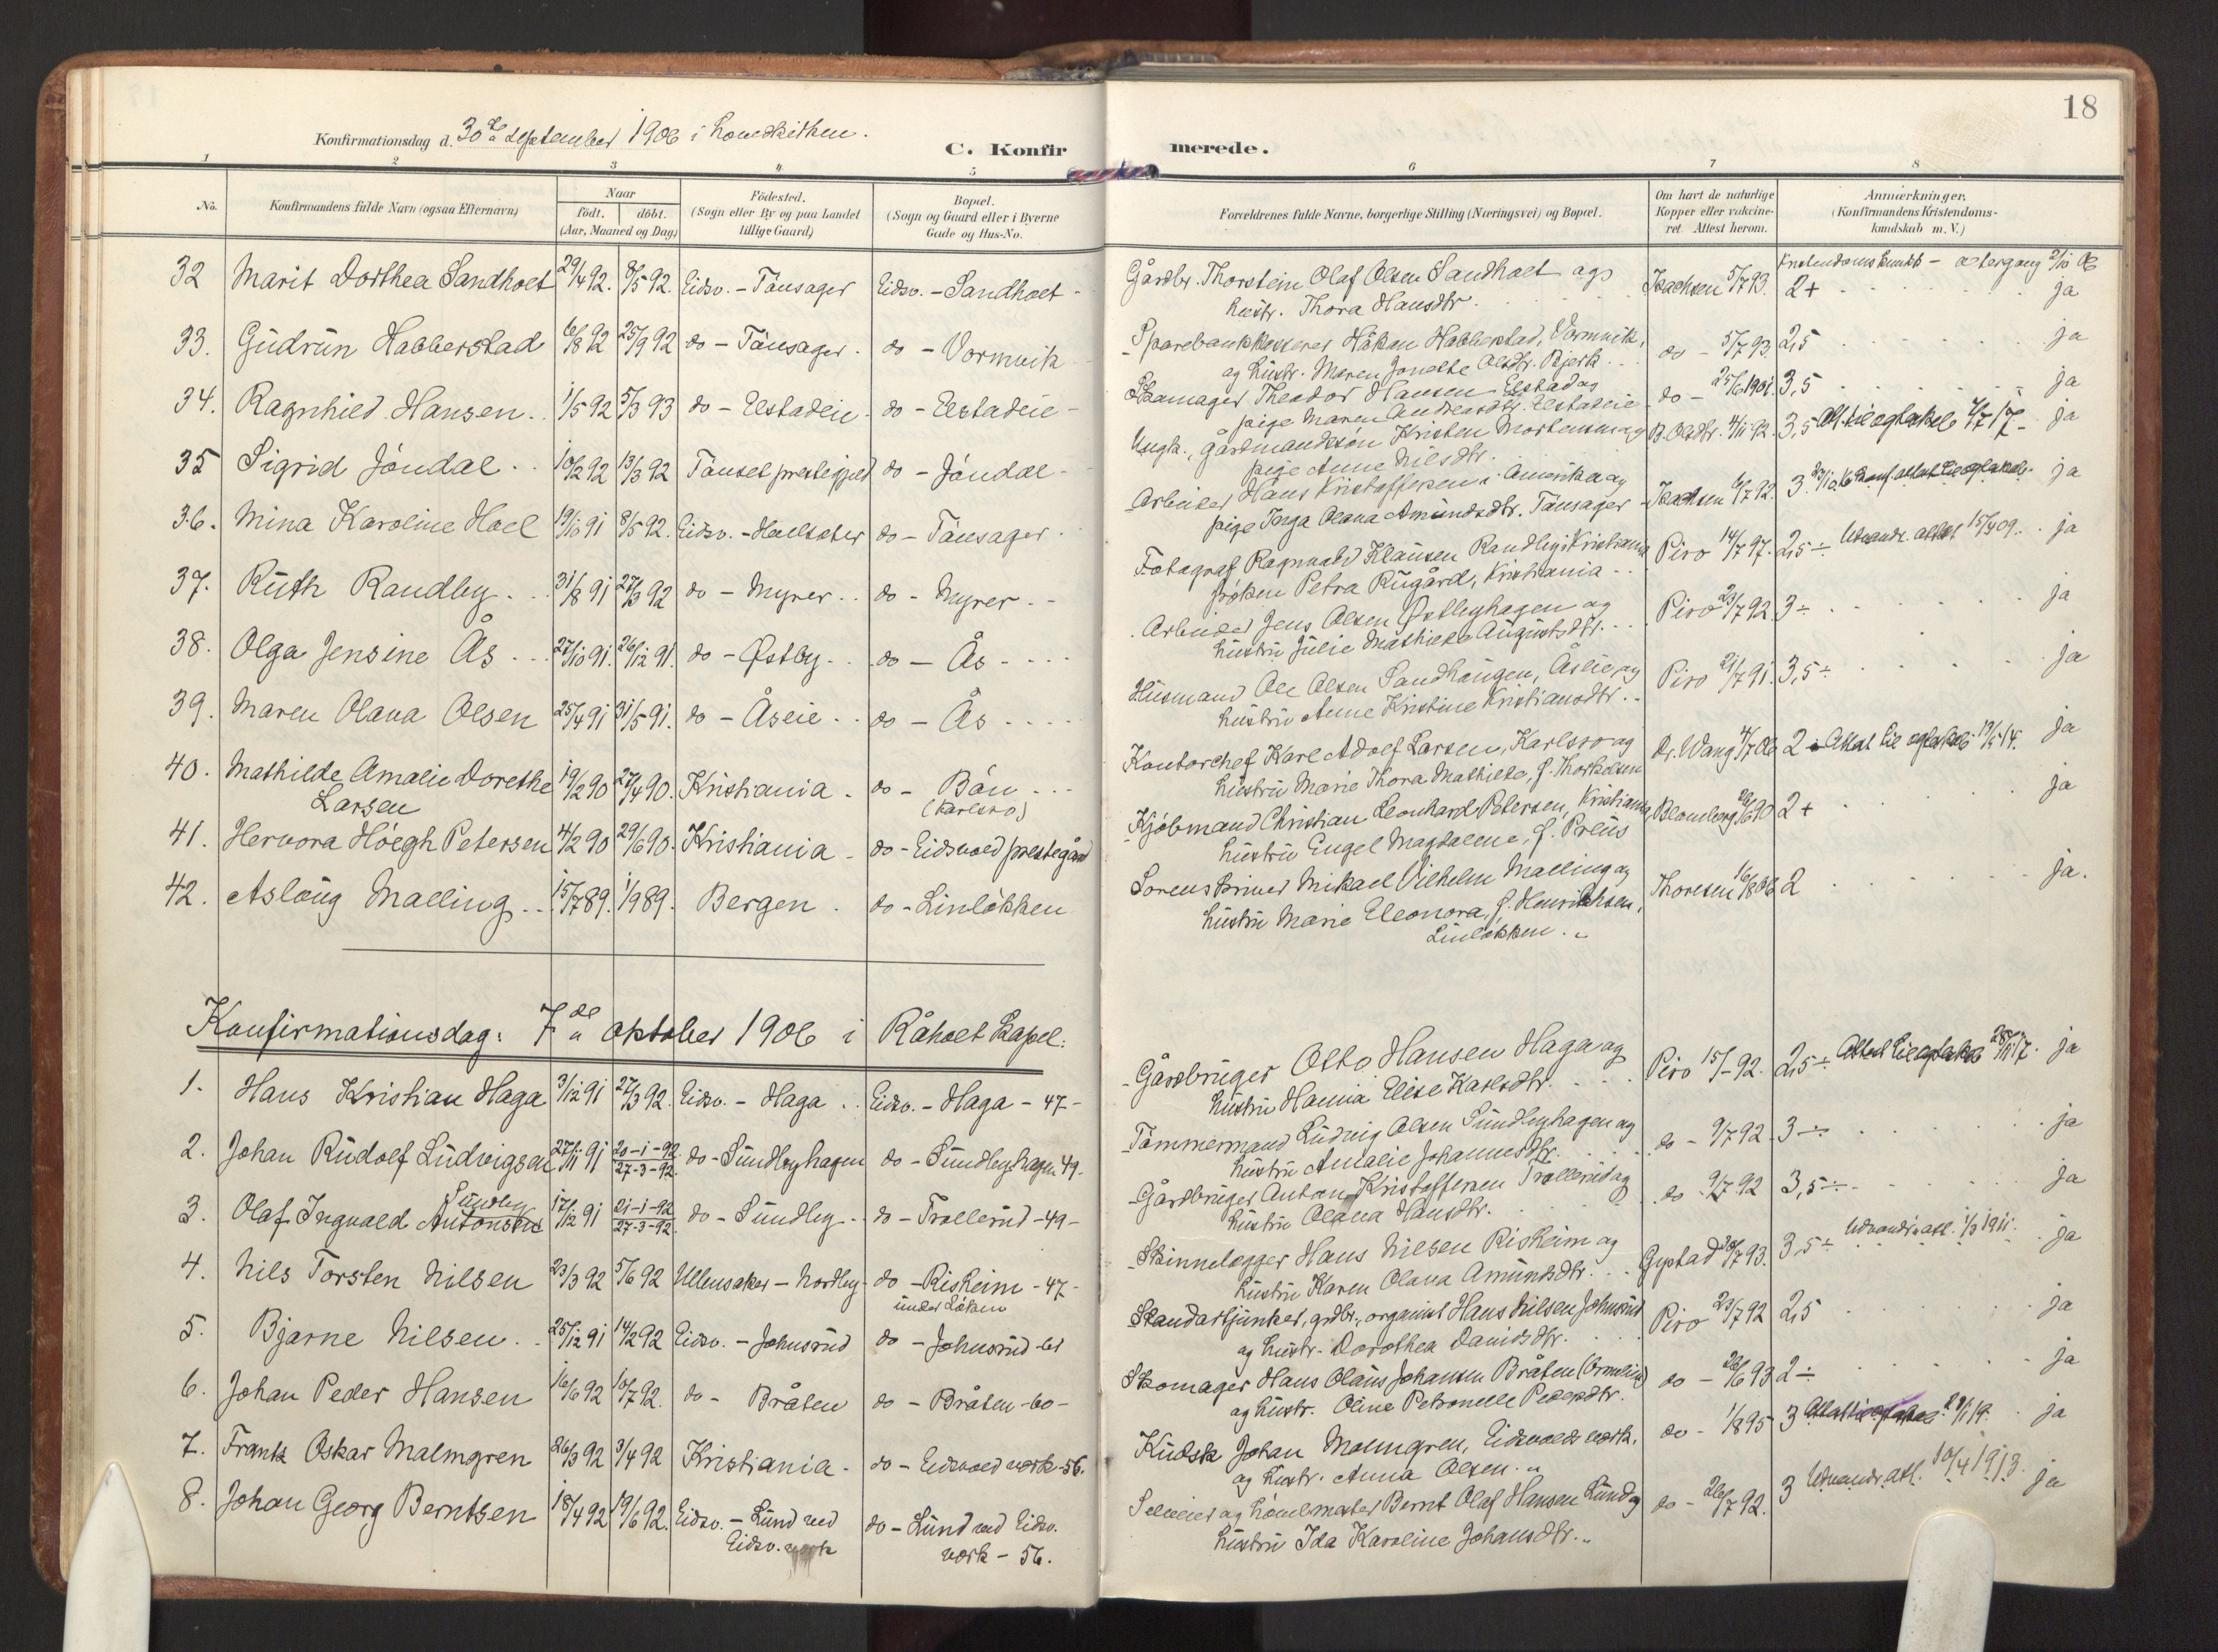 18
Konfirmationsdag d. 30te september 1906 i hovedkirken.
C. Konfirmerede.
1 2 3 4 5 6 7 8
No. Konfirmandens fulde Navn (ogsaa Efternavn) Naar født. døbt. (Aar, Maaned og Dag) Födested. (Sogn eller By og paa Landet tillige Gaard) Bopæl. (Sogn og Gaard eller i Byerne Gade og Hus-No. Forældrenes fulde Navne, borgerlige Stilling (Næringsvei) og Bopæl. Om havt de naturlige Kopper eller vakcineret. Attest herom. Anmærkninger. (Konfirmandens Kristendomskundskab m. V.)
32 Marit Dorthea Sandholt 29/4 92. 8/5 92. Eidsv. - Tönsager Eidsv. - Sandholt - Gårdbr. Thorstein Olaf Olsen Sandholt og hustr. Thora Hansdtr. Isachsen 5/7 93. 2+ ja
33. Gudrun Habberstad 6/8 92 25/9 92 do - Tönsager. do - Vormvik Sparebankkasserer Håkon Habberstad, Vormvik, og hustr. Maren Jonette Olsdtr. Bjerk do - 5/7 93. 2,5 ja
34. Ragnhild Hansen. 1/5 92 5/3 93 do - Elstadeie do - Elstadeie - Skomager Theodor Hansen Elstad og pige Maren Andreasdtr. Elstadeie do - 25/6 1901. 3,5 ja
35 Sigrid Jöndal. 10/2 92 13/3 92 Tönset prestegjeld do - Jöndal - Ungk., gårdmandssön Kristen Mortensen og pige Anne Nilsdtr. B. Olsdtr. 4/11 92. 3,5 ja
36. Mina Karoline Hoel 19/10 91 8/5 92. Eidsv. - Hoelsæter do - Tönsager. Arbeider Hans Kristoffersen i Amerika og pige Inga Olava Amundsdtr. Tönsager Isachsen 6/7 92. 3. ja
37. Ruth Randby. 31/8 91 27/3 92 do - Myrer.. do - Myrer. - Fotograf Ragnvald Klausen Randby i Kristiania frøken Petra Rugård, Kristiania - Piro 14/7 97. 2,5 ÷ Utvandr. attest 15/4 09. ja
38. Olga Jensine Ås. 27/10 91. 26/12 91. do - Østby. do - Ås Arbeider Jens Olsen Østbyhagen og hustru Julie Mathilde Augustsdtr. Piro 23/7 92. 3 ÷ ja
39. Maren Olava Olsen 25/4 91 31/5 91. do - Åseie. do - Ås Husmand Ole Olsen Sandhaugen, Åseie, og hustru Anne Kristine Kristiansdtr. Piro 21/7 91. 3,5 ÷ ja
40. Mathilde Amalie Dorethe Larsen 19/2 90 27/4 90. Kristiania. do - Bön (Karlsro) Kontorchef Karl Adolf Larsen, Karlsro og hustru Marie Thora Mathilde, f. Thorkelsen Dr. Wang 4/7 06 2 Attest til ægteskab 13/5 14. ja
41. Hervora Höegh Petersen 4/2 90 29/6 90. Kristiania do - Eidsvold prestegård Kjöbmand Christian Leonhard Petersen, Kristiania, hustru Engel Magdalene, f. Preus Blomberg 20/6 90 2+ ja
42. Aslaug Malling. 15/7 89. 1/9 89. Bergen. do - Linlökken Sorenskriver Mikael Vilhelm Malling og hustru Marie Eleonora, f. Henrichsen, Linlökken. Thoresen 16/8 06 2 ja.
Konfirmationsdag: 7de oktober 1906 i Råholt kapel.
1. Hans Kristian Haga 3/12 91 27/3 92. Eidsv. - Haga. Eidsv. - Haga - 47 - Gårdbruger Otto Hansen Haga og hustru Hanna Elise Karlsdtr. Piro 15/- 92. 2,5 ÷ ja
2. Johan Rudolf Ludvigsen 27/11 91 20-1-92 27-3-92. do - Sundbyhagen do - Sundbyhagen 49. Tømmermand Ludvig Olsen Sundbyhagen og hustru Amalie Johannesdtr. do - 9/7 92. 3 ÷ ja
3. Olaf Ingvald Antonsen Sundby 17/12 91 21-1-92 27-3-92 do - Sundby. do - Trollerud - 49 - Gårdbruger Anton Kristoffersen Trollerud og hustru Olava Hansdtr. do - 9/7 92 3,5 ÷ ja
4. Nils Torsten Nilsen 23/3 92 5/6 92 Ullensaker - Nordby do - Risheim - 47 - under Löken Skinnelegger Hans Nilsen Risheim og hustru Karen Olava Amundsdtr. Gystad 30/7 93. 3,5 ÷ Utvandr. att. 1/3 1911. ja
5. Bjarne Nilsen. 25/12 91 14/2 92 Eidsv. - Johnsrud do - Johnsrud - 61 Standartjunker, grdbr., organist Hans Nilsen Johnsrud og hustr. Dorothea Davidsdtr. Piro 23/7 92 2,5 ja
6. Johan Peder Hansen 16/6 92 10/7 92. do - Bråten do - Bråten - 60 - Skomager Hans Olaus Johansen Bråten (Ormlien) og hustr. Oline Petronelle Pedersdtr. do - 26/6 93 2 ÷ ja
7. Frantz Oskar Malmgren 26/3 92 3/4 92 Kristiania - do - Eidsvold værk - 56. Kudsk Johan Malmgren, Eidsvold værk, og hustr. Anna Olsen. do - 1/8 95 3 ja
8. Johan Georg Berntsen 18/4 92 19/6 92. Eidsv. - Lund ved Eidsv. værk do - Lund ved Eidsv. værk - 56. Selveier og hovlmester Bernt Olaf Hansen Lund og hustru Ida Karoline Johansdtr. do - 26/7 92. 3 Utvandr. att. 10/4 1913. ja